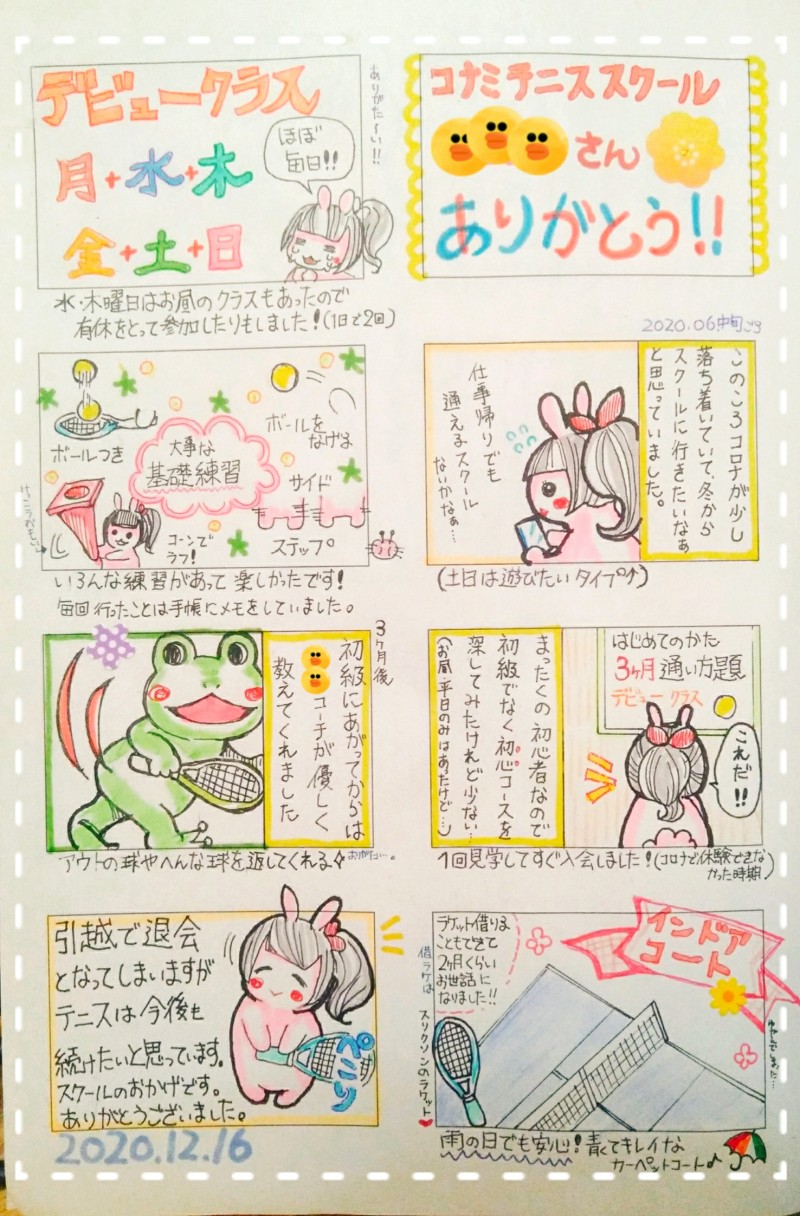 コナミテニススクール
さん
ありがとう!!
2020.06中旬ごろ
このころコロナが少し
落ち着いていて、冬から
スクールに行きたいなぁ
と思っていました。
仕事帰りでも
通えるスクール
ないかなぁ…
(土日は遊びたいタイプ↑)
はじめてのかた
3ヶ月通い方題
デビュークラス
これだ!!
まったくの初心者なので
初級でなく初心コースを
深してみたけれど少ない…
(お昼・平日のみはあったけど…)
1回見学してすぐ入会しました!(コロナで休験できな
かった時期)
インドア
コート
ラケット借りる
こともできて
2ヶ月くらい
お世話に
なりました!!
借ラケは
スリクソンのラケット
雨の日でも安心!青くてキレイな
カーペットコート♪
デビュークラス
月+水+木
金+土+日
ほぼ
毎日!!
ありがた〜い!!
水・木曜日はお昼のクラスもあったので
有休をとって参加したりもしました!(1日で2回)
ボールつき
大事な
基礎練習
ボールを
なげる
サイド
ステップ
コーンで
ラブ!
いろんな練習があって楽しかったです!
毎回行ったことは手帳にメモをしていました。
3ヶ月後
初級にあがってからは
コーチが優しく
教えてくれました
アウトの球やへんな球を返してくれる
引越で退会
となってしまいますが
テニスは今後も
続けたいと思っています。
スクールのおかげです。
ありがとうございました。
ぺこり
2020.12.16